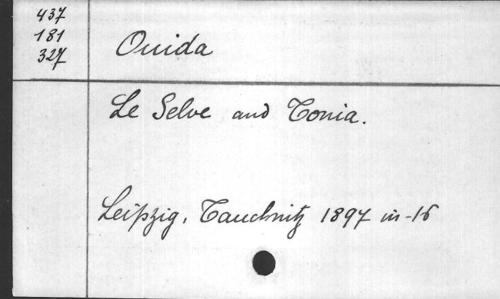 437
181
327
Ouida
Le Selve and Tonia.
Leipzig, Tauchnitz 1897 in-16